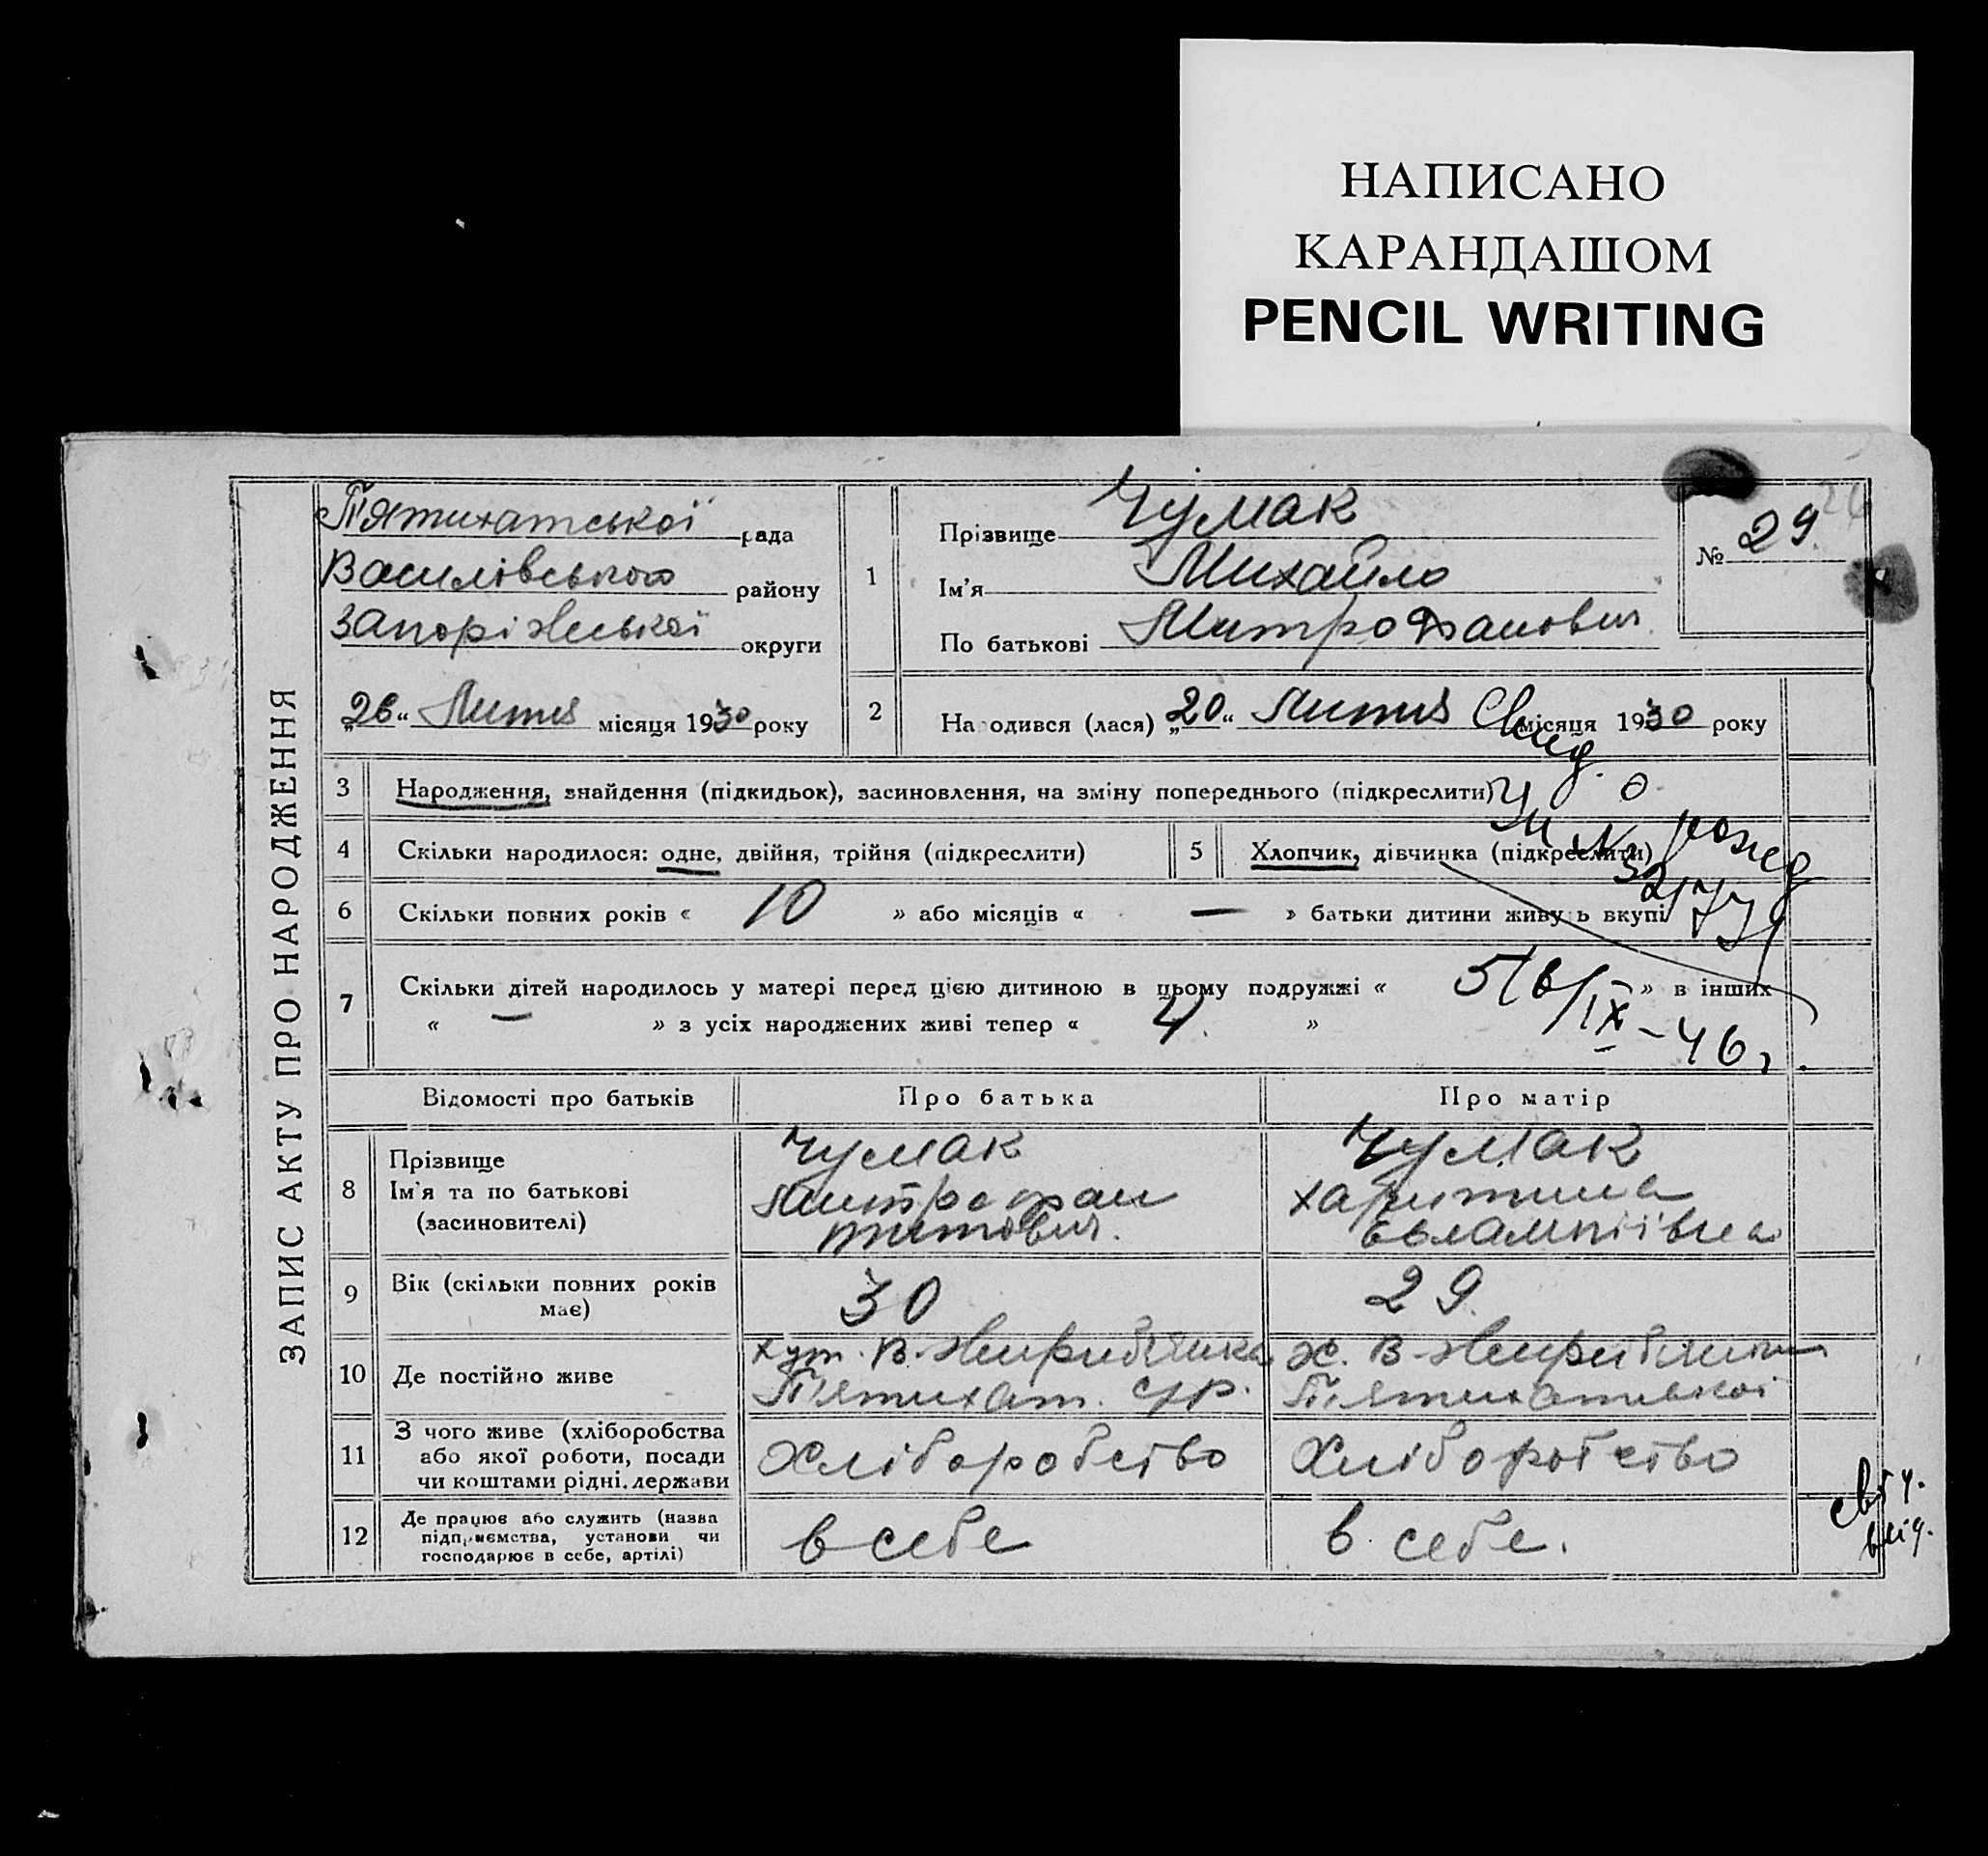 НАПИСАНО
КАРАНДАШОМ
PENCIL WRITING
ЗАПИС АКТУ ПРО НАРОДЖЕННЯ
Пятихатської рада
Василівського району
Запоріжської округи
„26“ Липня місяця 1930 року
1
Прізвище Чумак
Ім'я Михайло
По батькові Митрофанович
№ 29.
26
2 Народився (лася) „20“ Липня місяця 1930 року
Свид. о рожд
3 Народження, знайдення (підкидьок), засиновлення, на зміну попереднього (підкреслити)
4 Скільки народилося: одне, двійня, трійня (підкреслити)
5 Хлопчик, дівчинка (підкреслити)
6 Скільки повних років « 10 » або місяців « — » батьки дитини живуть вкупі
7 Скільки дітей народилось у матері перед цією дитиною в цьому подружжі « 5 » в інших
« — » з усіх народжених живі тепер « 4. »
6/IX-46г.
Відомості про батьків Про батька Про матір
8 Прізвище
Ім'я та по батькові
(засиновителі)
Чумак
Митрофан
Титович.
Чумак
Харитина
Евлампіївна
9 Вік (скільки повних років
має)
30
29.
10 Де постійно живе
хут. В.
Пятихат. с/р.
х. В
Пятихатської
11 З чого живе (хліборобства
або якої роботи, посади
чи коштами рідні, держави
Хліборобство
Хліборобство
12 Де працює або служить (назва
підприємства, установи чи
господарює в себе, артілі)
в себе
в себе.